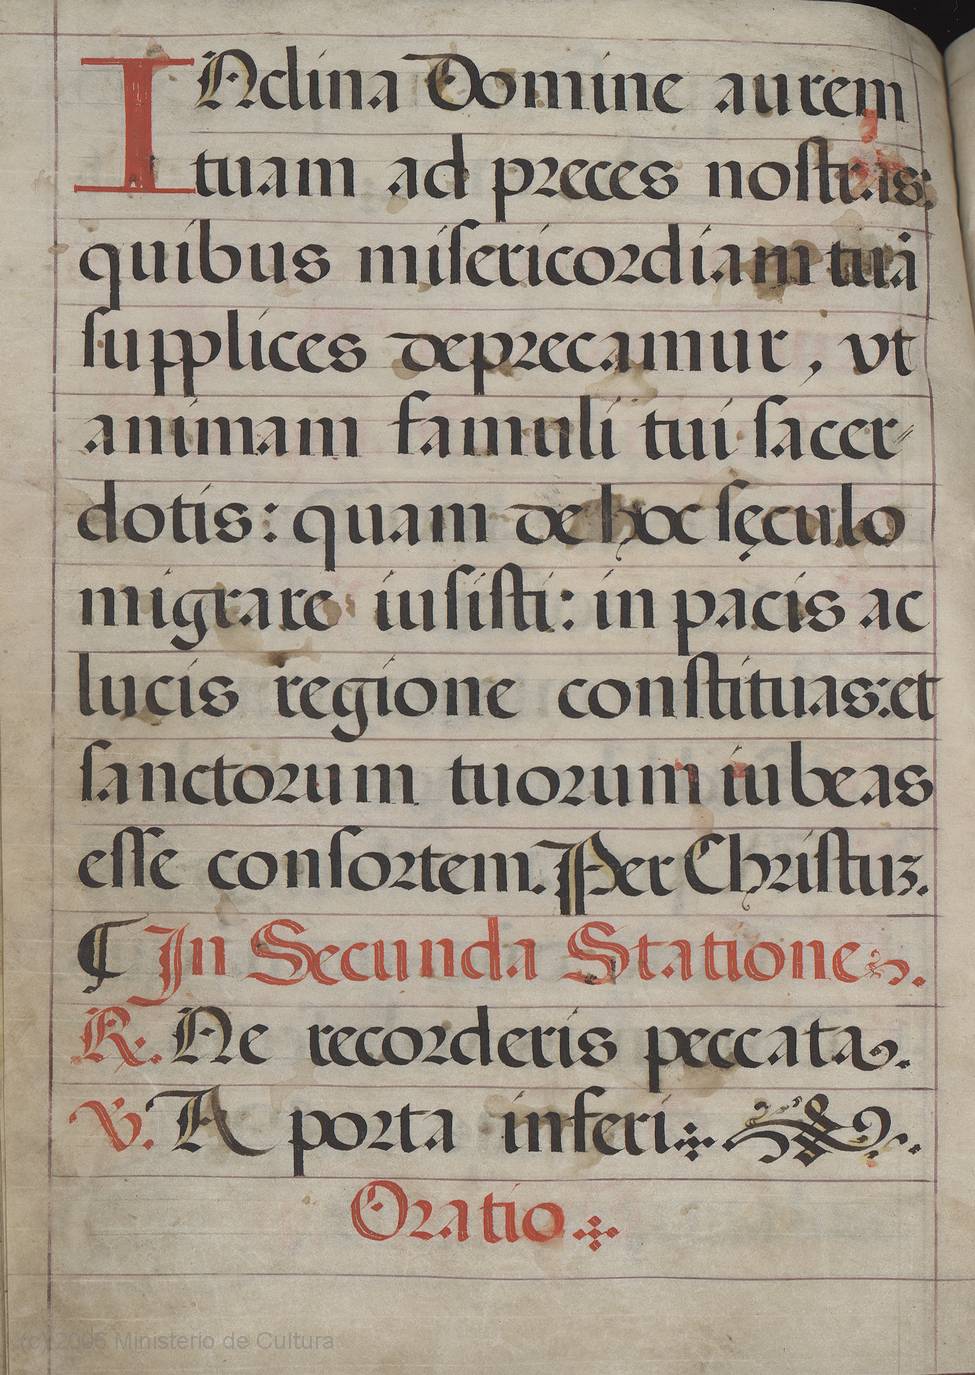 INclina Domine aurem
tuam ad preces nostras:
quibus misericordiam tuã
supplices deprecamur, vt
animam famuli tui sacer-
dotis: quam de hoc sęculo
migrare iusisti: in pacis ac
lucis regione constituas: et
sanctorum tuorum iubeas
esse consortem. Per Christuz.
¶ In Secunda Statione.
R. Ne recorderis peccata.
V. A porta inferi
Oratio
(c) 2005 Ministerio de Cultura